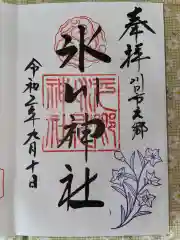 奉拝
川口市大郷
氷川神社
令和二年九月十日